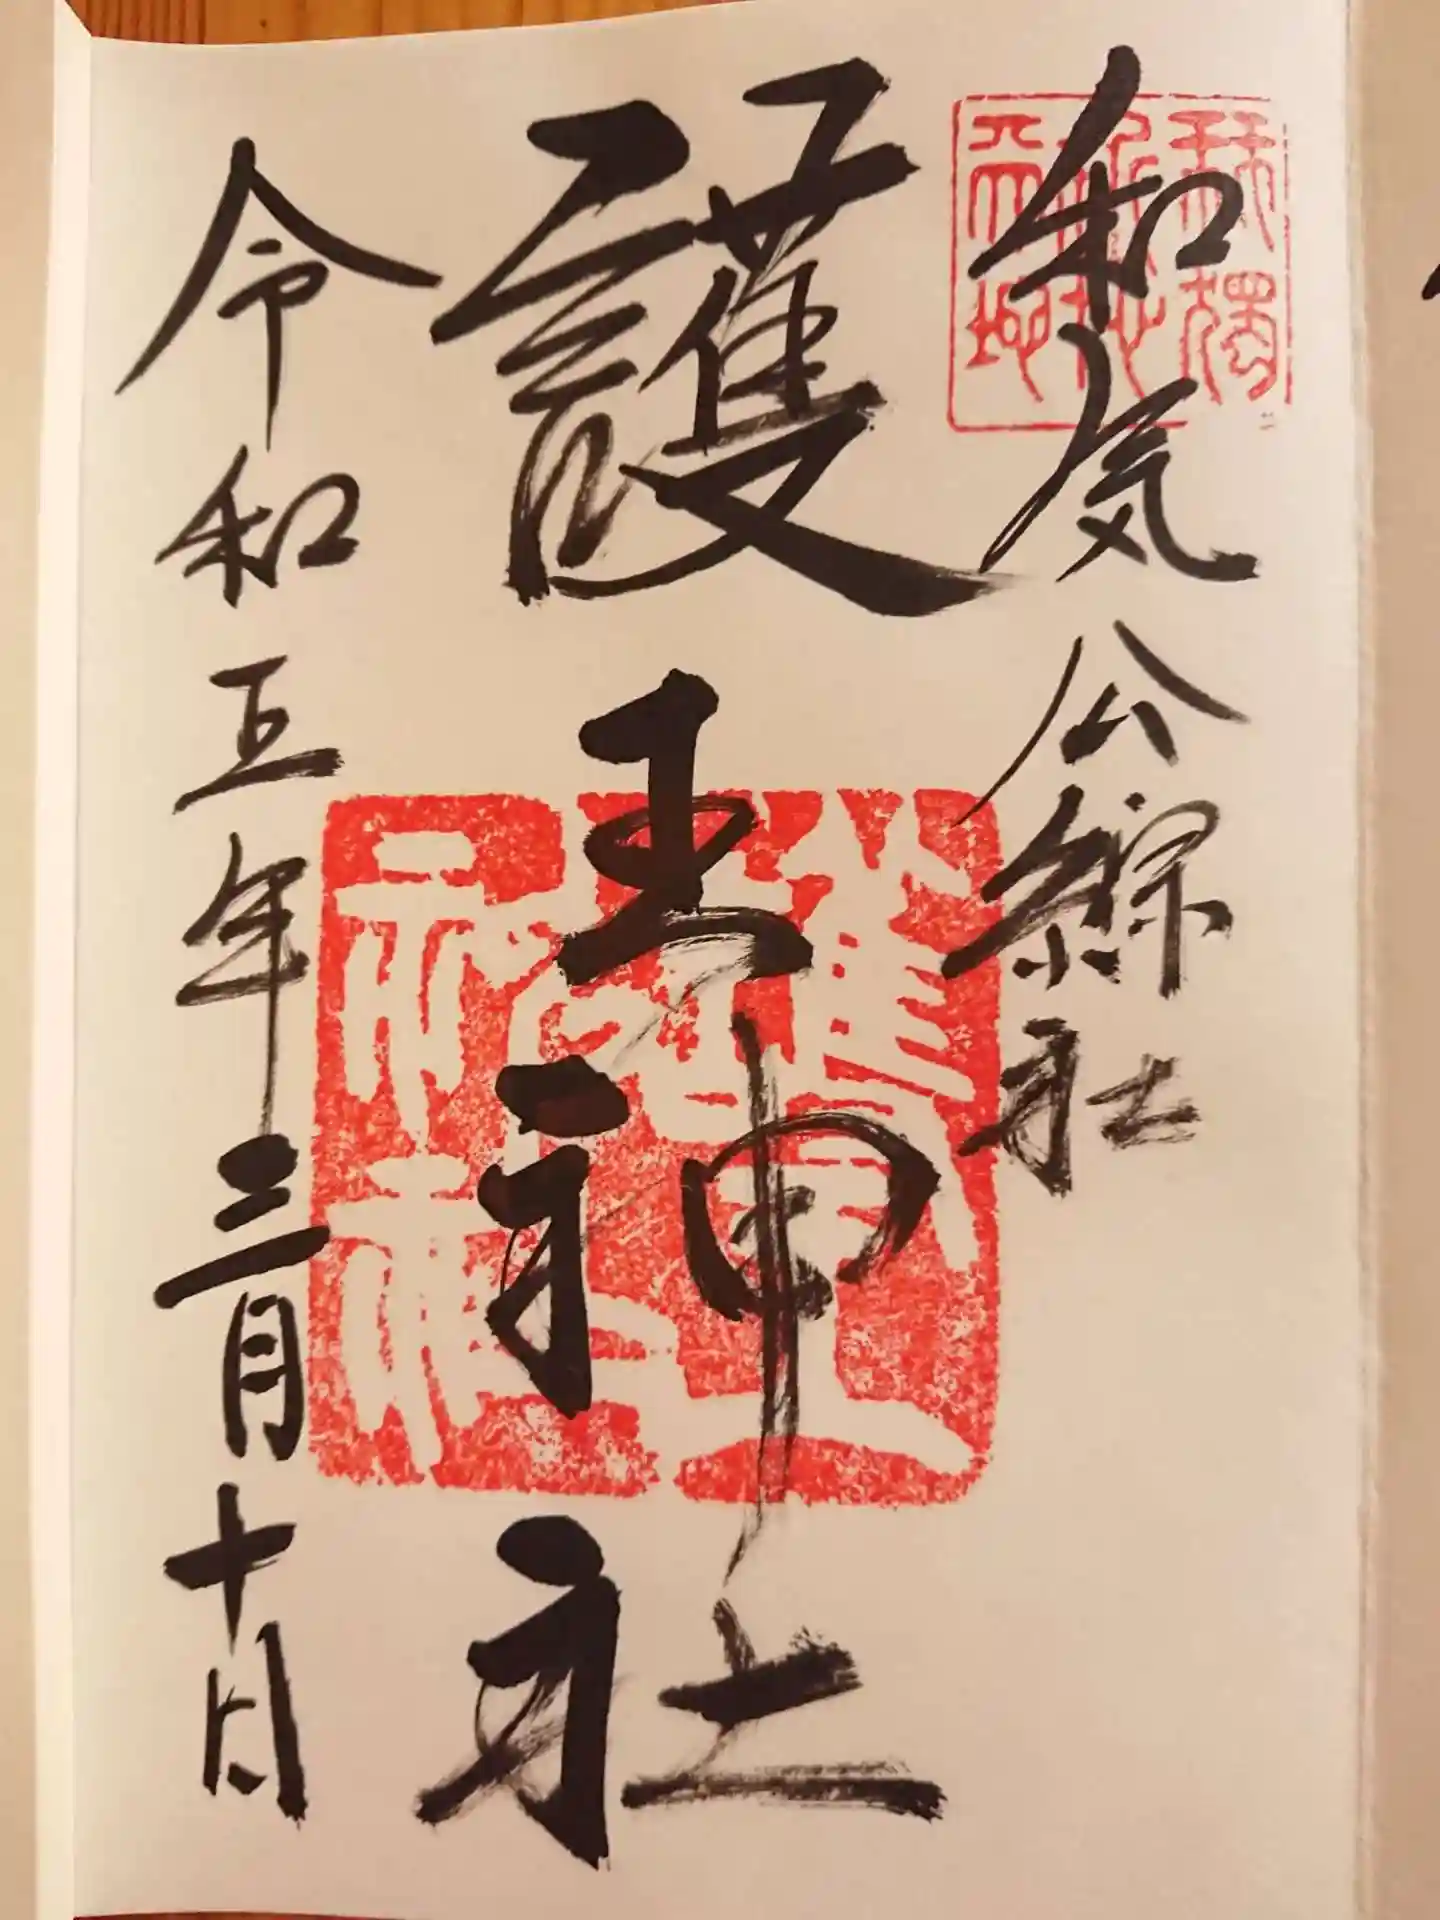 和気公綜社
護王神社
令和五年三月十日
護王神社